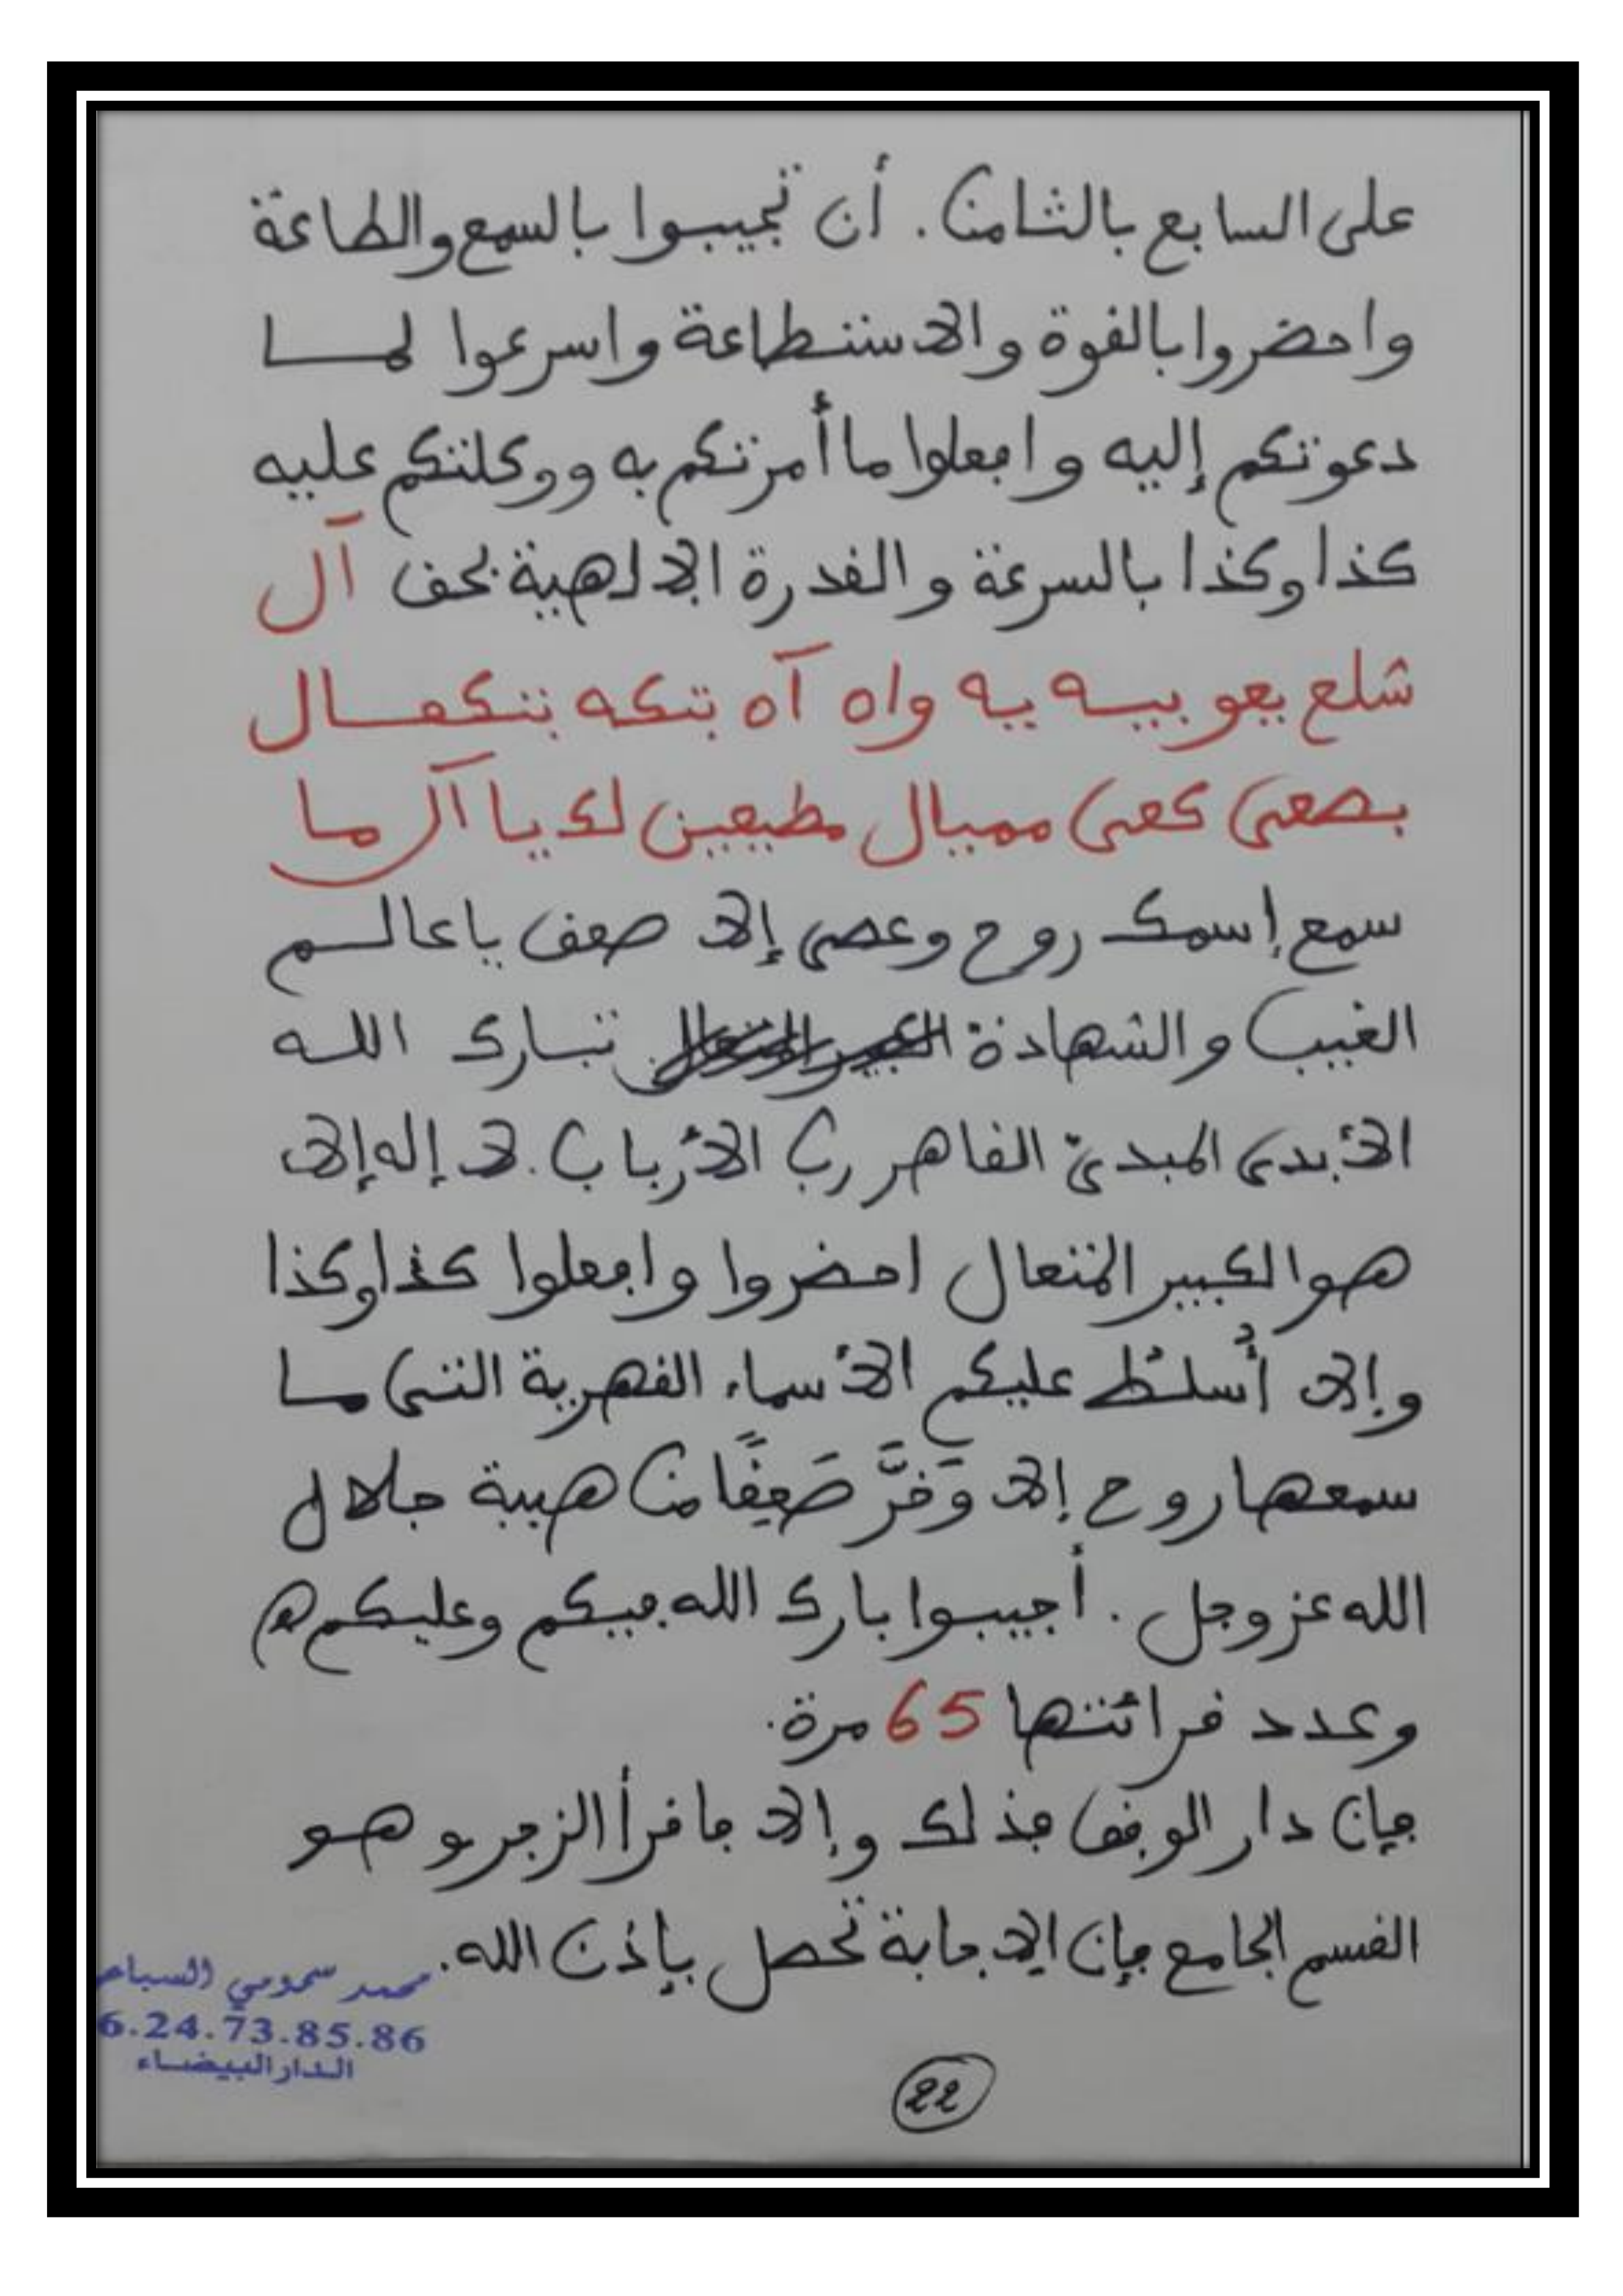 على السابع بالثامن. أن تجيبوا بالسمع والطاعة
واحضروا بالقوة والاستطاعة واسرعوا لما
دعوتكم إليه وافعلوا ما أمرتكم به ووكلتكم عليه
كذا وكذا بالسرعة والقدرة الإلاهية بحق آل
شلع يعو بيه يه واه آه بتكه بتكفال
بصعى كعى مميال مطيعين لك يا آل ما
سمع إسمك روح وعصى إلا صعق يا عالم
الغيب والشهادة تبارك الله
الأبدى المبدئ القاهر رب الأرباب. لا إله إلا
هو الكبير المتعال احضروا وافعلوا كذا وكذا
وإلا أسلط عليكم الأسماء القهرية التى ما
سمعها روح إلا وَفَرَّ صَعِقًا من هيبة جلال
الله عز وجل. أجيبوا بارك الله فيكم وعليكم ه
وعدد قرائتها 65 مرة.
فإن دار الوفق فذلك وإلا فاقرأ الزجر وهو
القسم الجامع فإن الإجابة تحصل بإذن الله.
محمد سمومي السباعي
6.24.73.85.86
الدار البيضاء
22